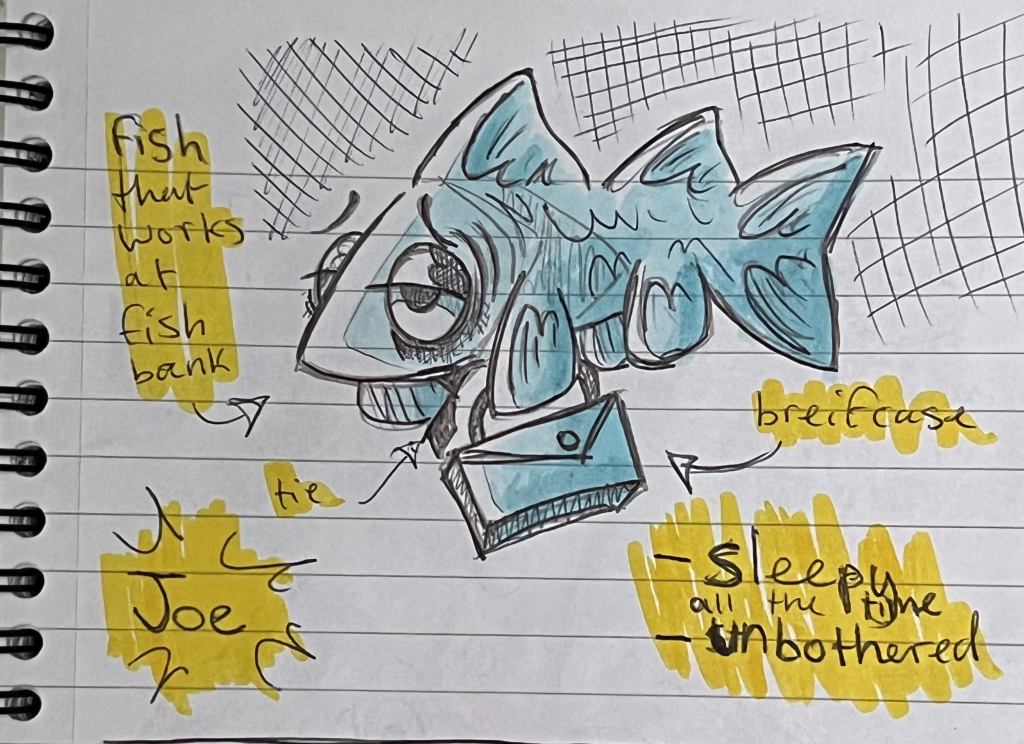 fish
that
works
at
fish
bank
breifcase
tie
Joe
- sleepy
all the time
- unbothered